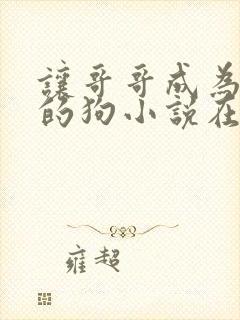 讓哥哥成為
的狗小說在
雍超